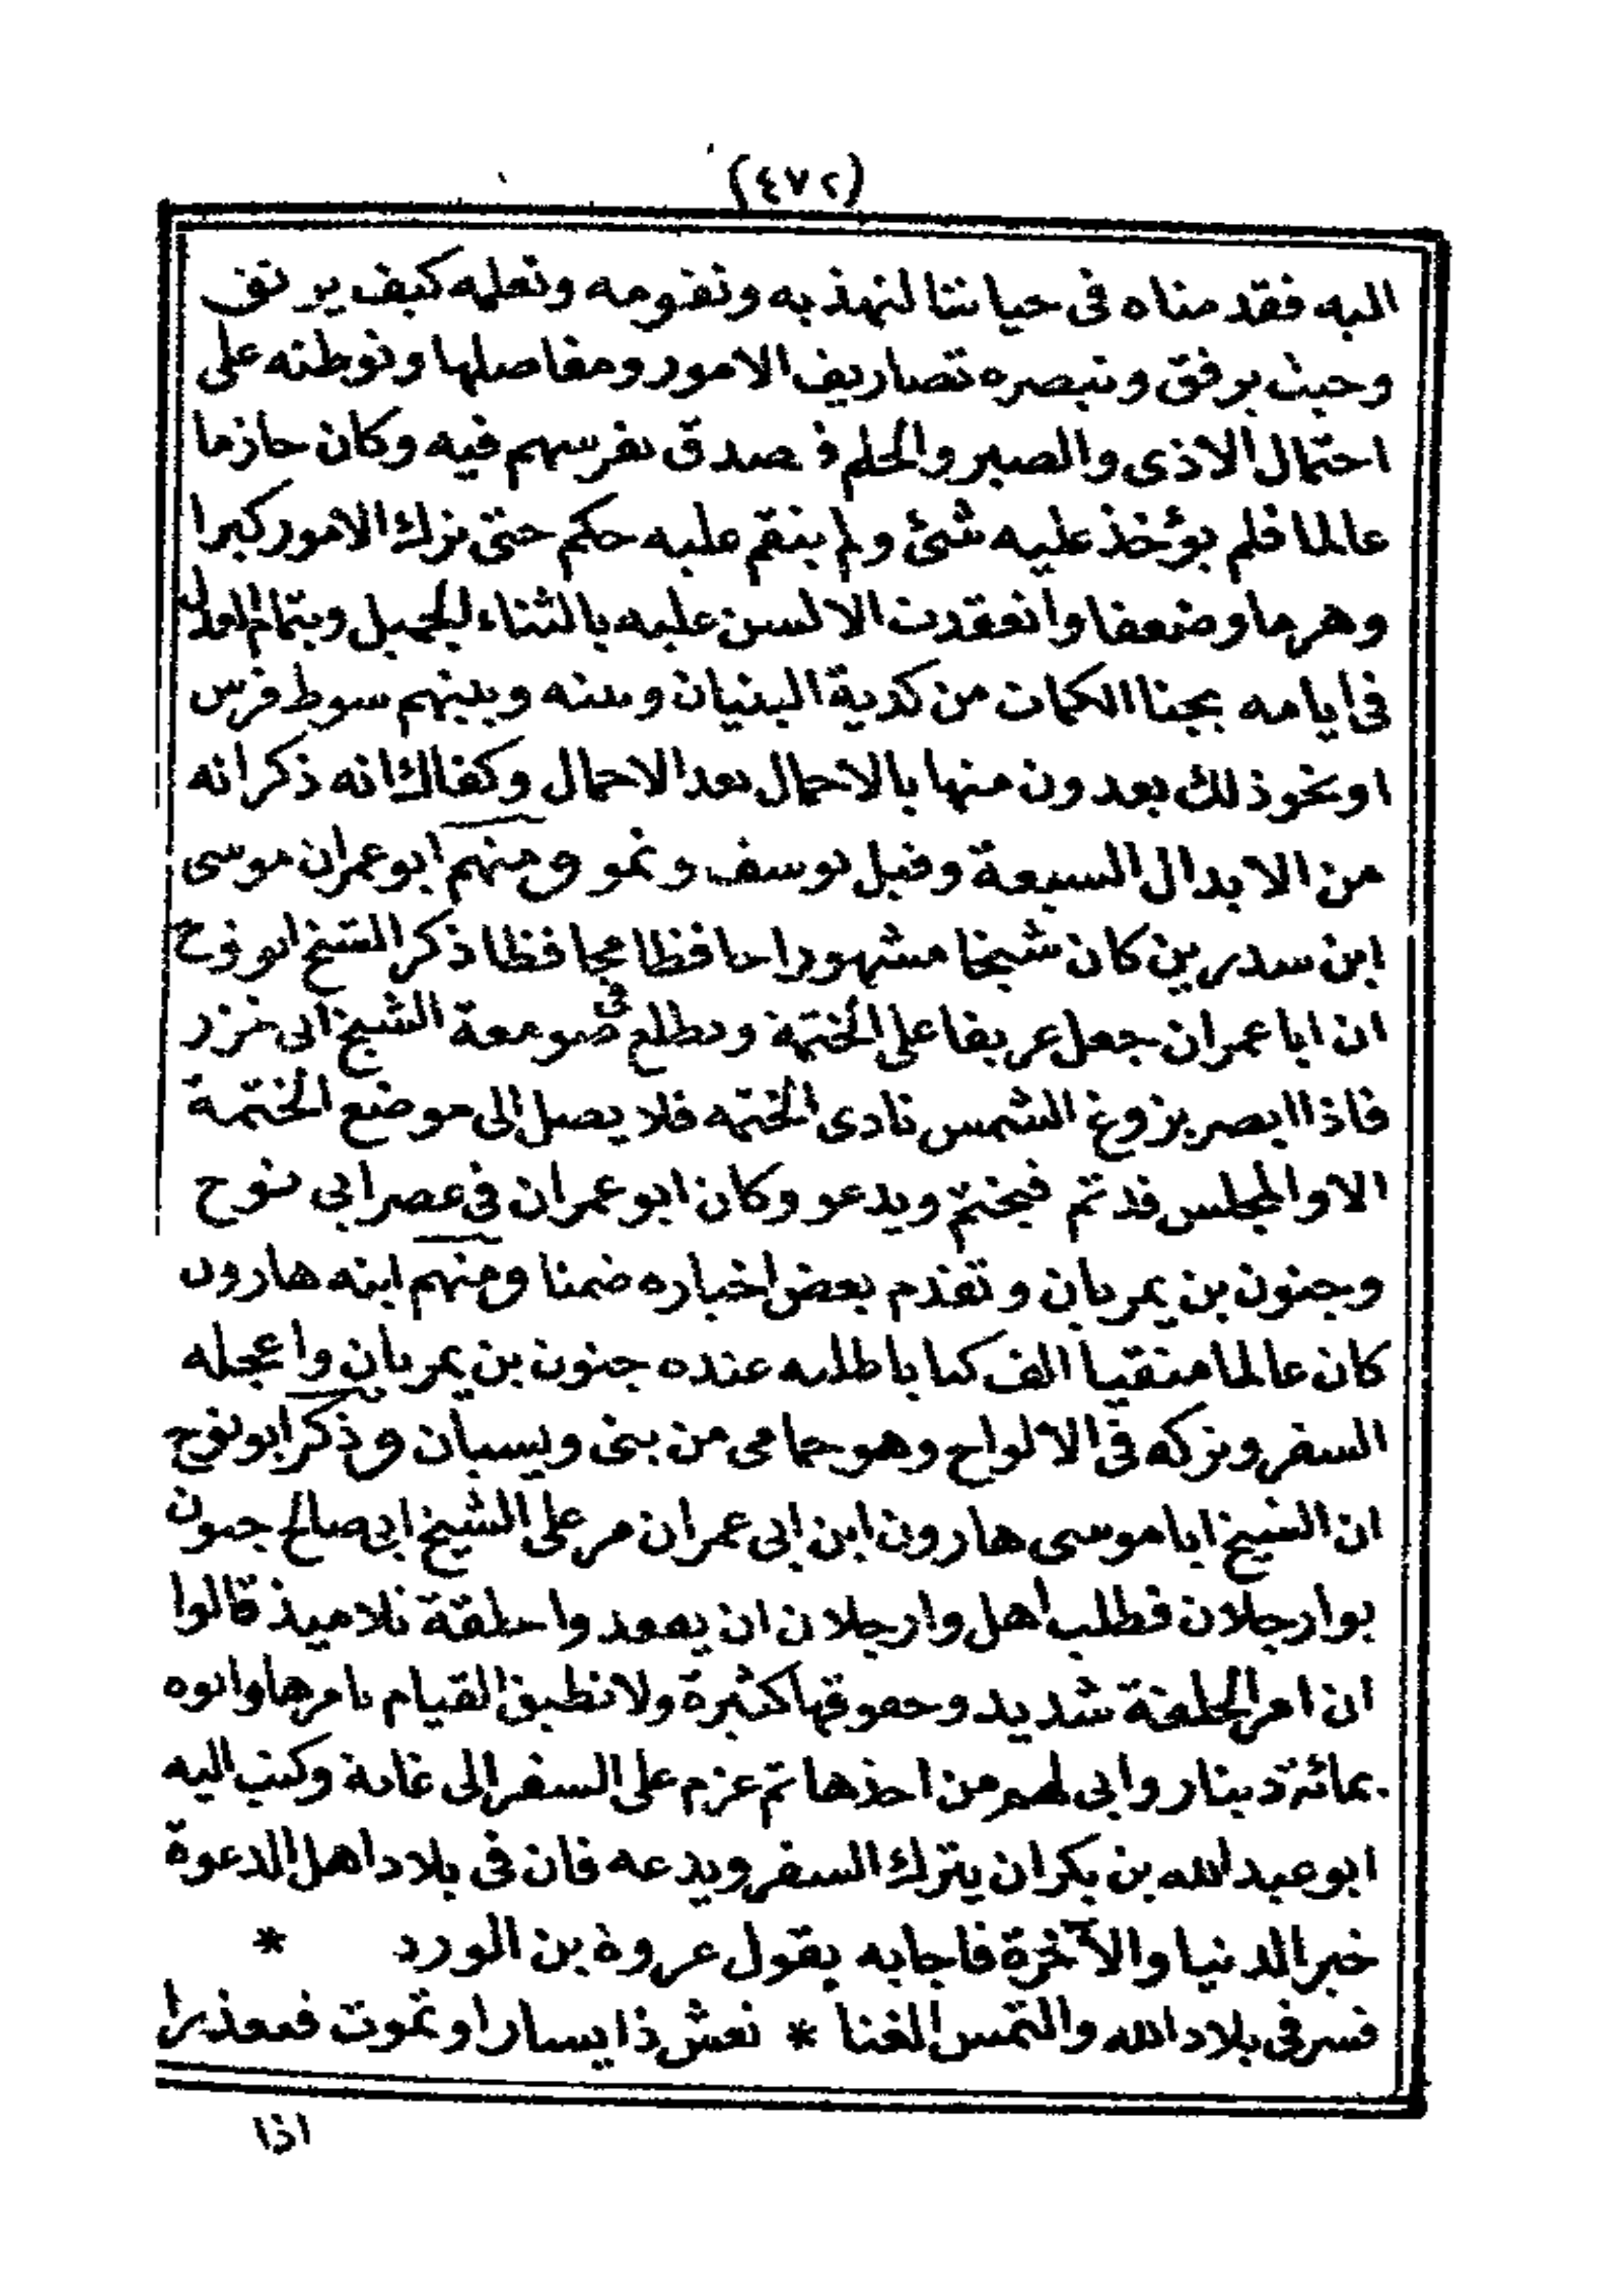 (٤٧٢)
اليه فقدمناه فى حياتنا لنهذبه ونقومه ونعلمه كيف يرتق
وحيث يرفق ونبصره تصاريف الامور ومفاصلها ونوطنه على
احتمال الاذى والصبر والحلم فصدق تفرسهم فيه وكان حازما
عالما فلم يؤخذ عليه شئ ولم ينقم عليه حكم حتى ترك الامور كبرا
وهرما وضعفا وانعقدت الالسن عليه بالثناء الجميل وبتمام العدل
فى ايامه يجنا الكمات من كدية البنيان وبينه وبينهم سوط فرس
او نحو ذلك بعدون منها بالاحمال بعد الاحمال وكفاك انه ذكر انه
من الابدال السبعة وقيل يوسف ونمو ومنهم ابو عمران موسى
ابن سدرين كان شيخا مشهورا حافظا محافظا ذكر الشيخ ابو نوح
ان ابا عمران جعل عريفا على الختمة ويطلع فى صومعة الشيخ ابى خزر
فاذا ابصر بزوغ الشمس نادى الختمه فلا يصل الى موضع الختمة
الا والمجلس قد تم فيختم ويدعو وكان ابو عمران فى عصر ابى نوح
وجنون بن يمريان وتقدم بعض اخباره ضمنا ومنهم ابنه هارون
كان عالما متقيا الف كتابا طلبه عنده جنون بن يمريان واعجله
السفر وتركه فى الالواح وهو حامى من بنى ويسيان وذكر ابو نوح
ان الشيخ ابا موسى هارون ابن ابى عمران مر على الشيخ ابى صالح جنون
بوارجلان فطلب اهل وارجلان ان يعقدوا حلقة تلاميذ قالوا
ان امر الحلقة شديد وحقوقها كثيرة ولا نطيق القيام بامرها واتوه
بمائة دينار وابى لهم من اخذها ثم عزم على السفر الى غانة وكتب اليه
ابو عبد الله بن بكر ان يترك السفر ويدعه فان فى بلاد اهل الدعوة
خير الدنيا والآخرة فاجابه بقول عروة بن الورد *
فسر فى بلاد الله والتمس الغنا * تعش ذا يسار او تموت فتعذرا
اذا